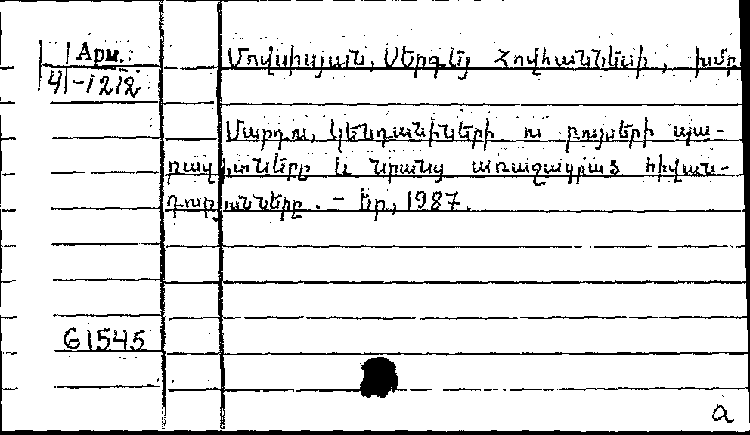 Арм.
Ч -1212
Մովսիսյան, Սերգեյ Հովհաննեսի, խմբ.
Մարդու, կենդանիների ու բույսերի պա-
րազիտները և նրանց առաջացրած հիվան-
դությունները. - Եր., 1987.
61545
a